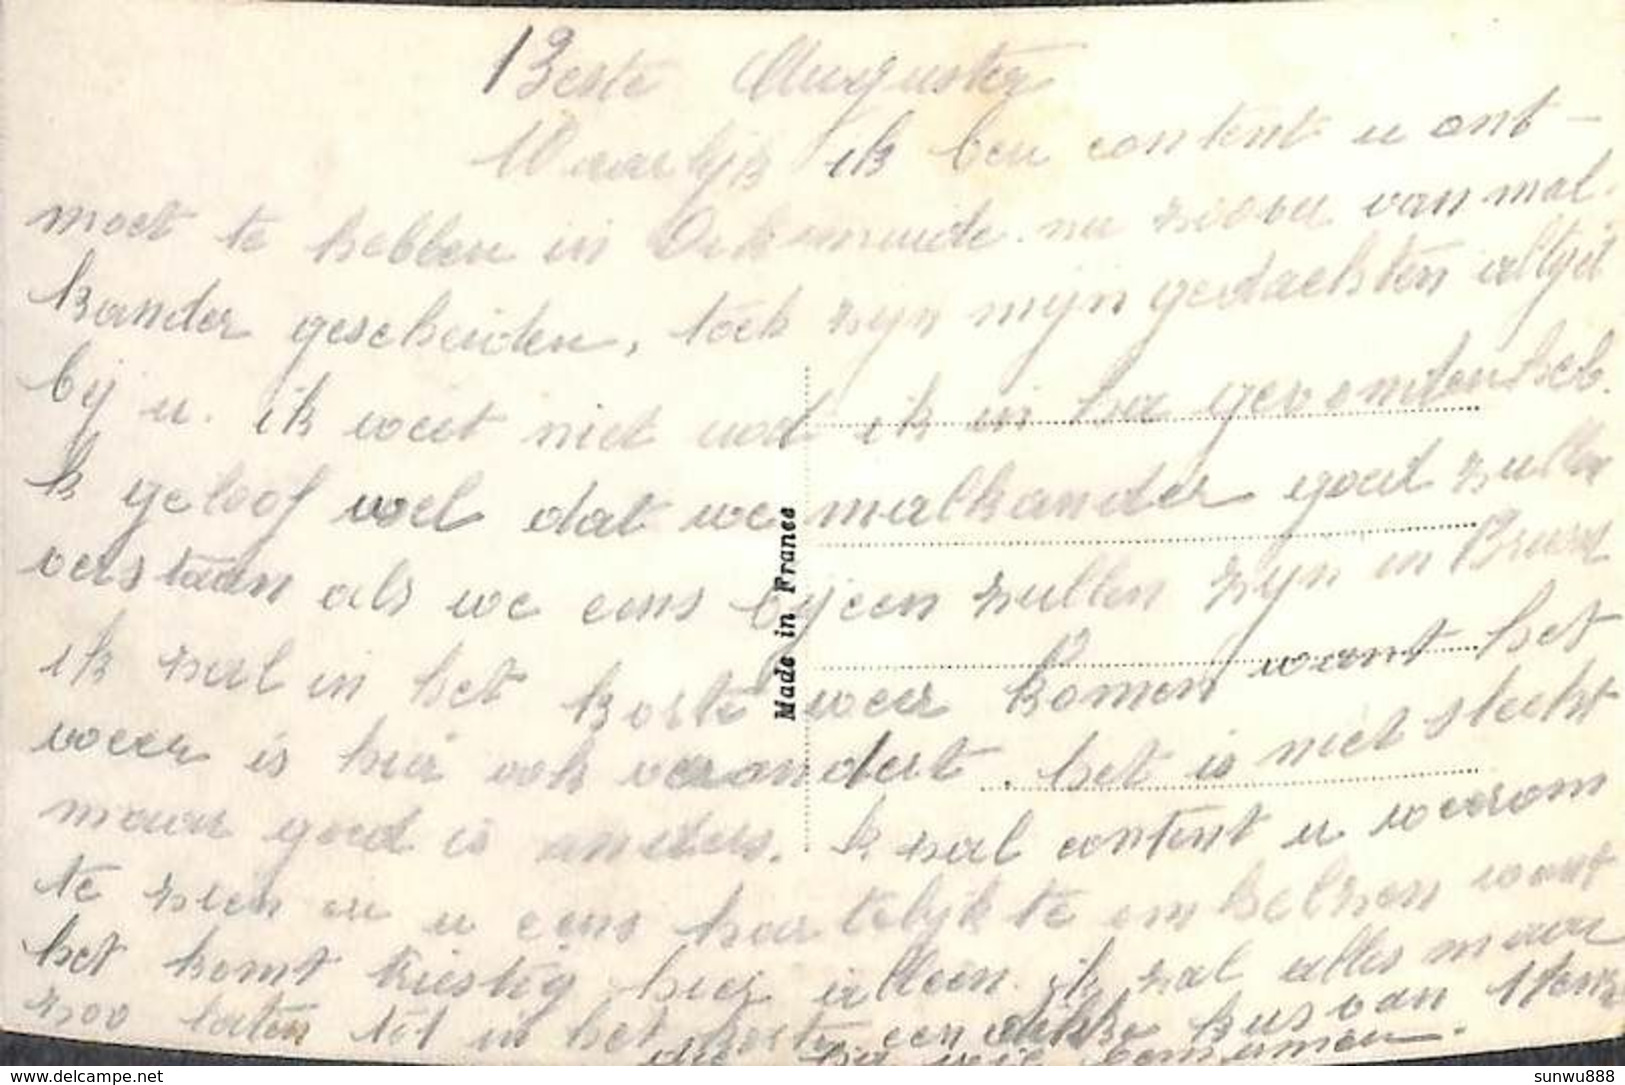 Beste Augusten
Waarlijk ik ben content u ont-
moet te hebben in Diksmuide. nu zijn van mal-
kander gescheiden, toch zijn mijn gedachten altijd
bij u. ik weet niet wat ik in ha gevonden heb.
k geloof wel dat we malkander goed zullen
verstaan als we eens bijeen zullen zijn in
ik zal in het korte weer komen want het
weer is hier ook verandert. het is niet slecht
maar goed is anders. k zal content u weerom
te zien en u eens hartelijk te embelzen want
het komt triestig hier alleen. ik zal alles maar
zoo laten tot in het korte een dikke kus van
die u beminnen.
Made in France
www.delcampe.net
sunwu888